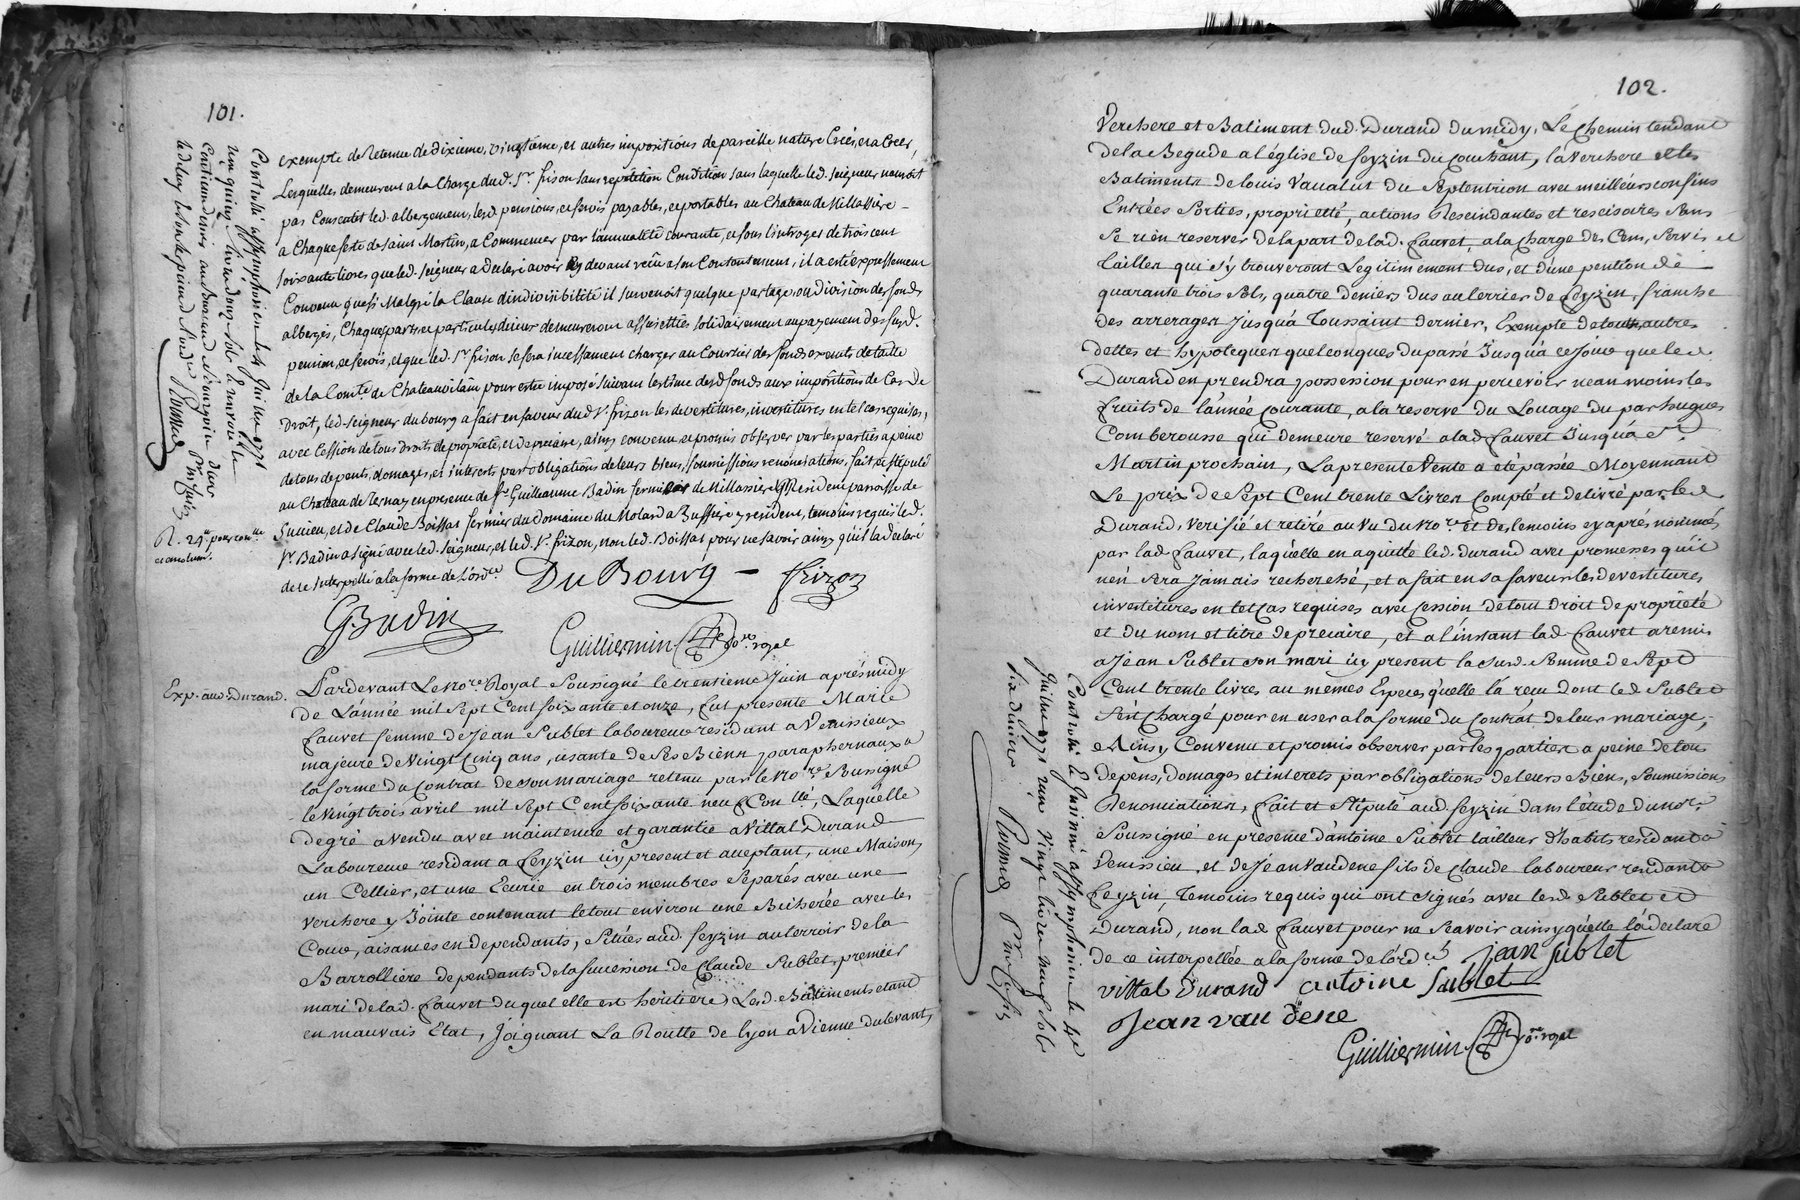 101.
exempte de Retenue de dixieme, vingtieme, et autres impositions de pareille nature Créés, et a Créer,
Lesquelles demeurent a la Charge dud. Sr. frison sans repetition Condition sans laquelle led. Seigneur nauroit
pas Consentit led. albergement, lesd. pensions, et servis payables, et portables au Chateau de Millassiere
a Chaque feste de saint Martin, a Commencer par lannualité courante, et sous l'introges de trois cent
soixante livres que led. Seigneur a declaré avoir cy devant reçu a son Contentement, il a été expressement
Convenu que si Malgré la Clause d'indivisibilité il survenoit quelque partage, ou division des fonds
albergés, Chaque part et particule d'iceux demeureront assujetties solidairement au payement des susd.
pension, et servis, et que led. Sr. frison se fera incessament charger au Courrier des fonds exempts de taille
de la Comté de Chateauvilain pour estre imposé suivant l'estime desd. fonds aux impositions de Cas de
Droit, led. Seigneur du bourg a fait en faveur dud. Sr. frizon les devestitures, investitures en tel cas requises,
avec Cession de tous droits de proprieté, et de precaire, ainsy convenu et promis observer par les parties a peine
de tous depents, domages, et interests par obligations de leurs biens, soumissions renonciations, fait, et stipulé
au Chateau de Ternay en presence de Sr. Guilleaume Badin fermier de Millassiere y Resident parroisse de
Sucieu, et de Claude Boissat fermier du domaine du Molard a Buffiere y resident, temoins requis led.
Sr. Badin a signé avec led. Seigneur, et led. Sr. frizon, non led. Boissat pour ne savoir ainsy qu'il la declaré
de ce Interpellé a la forme de L'ordce.
Du Bourg
frizon
GBadin
Guilliermin
No.re royal
Controllé a st symphorien le 4 Juillet 1771
Exp. aud. Durand.
Pardevant Le No.re Royal Soussigné le trentieme Juin aprés midy
de L'année mil sept Cent soixante et onze, fut presente Marie
fauvet femme de Jean Sublet laboureur residant a Venissieux
majeure de Vingt Cinq ans, usante de ses Biens paraphernaux a
la forme du Contrat de son mariage retenu par le No.re Soussigné
le vingt trois avril mil sept Cent soixante neuf Con.llé, Laquelle
de gré a vendu avec maintenue et garantie a Vittal Durand
Laboureur residant a feyzin icy present et acceptant, une Maison,
un Cellier, et une Ecurie en trois membres Séparés avec une
verchere y Jointe contenant le tout environ une Bicherée avec les
Cour, aisances en dependants, Situés aud. feyzin au terroir de la
Barrolliere dependants de la succession de Claude Sublet, premier
mari de lad. fauvet duquel elle est heritiere, Lesd. Batiments etant
en mauvais Etat, Joignant La Routte de lyon a Vienne du levant,
102.
Verchere et Batiment dud. Durand du midy, Le Chemin tendant
de la Begude a l'église de feyzin du Couchant, la Verchere et les
Batiments de louis Vavalut du Septentrion avec meilleurs confins
Entrées Sorties, proprietté, actions Rescindantes et rescisoires Sans
Se rien reserver de la part de lad. fauvet, a la charge des Cens, Servis et
Tailles qui s'y trouveront Legitimement dus, et d'une pention de
quarante trois Sols, quatre deniers dus au terrier de feyzin, franche
des arrerages Jusqu'a Toussaint dernier, Exempte de toutes autres
dettes et hypoteques quelconques du passé Jusqu'a ce Jour que led.
Durand en prendra possession pour en percevoir neanmoins les
fruits de l'année courante, a la reserve du Louage du par hugues
Comberousse qui demeure reservé a lad. fauvet Jusqu'a St.
Martin prochain, La presente Vente a eté passée Moyennant
Le prix de Sept Cent trente Livres Compté et delivré par led.
Durand, verifié et retiré au Vu du No.re et des temoins cy aprés nommés
par lad. fauvet, laquelle en aquitte led. durand avec promesses qu'il
n'en sera Jamais recherché, et a fait en sa faveur les devestitures
investitures en tel cas requises avec cession de tout droit de proprieté
et du nom et titre de precaire, et a l'instant lad. fauvet a remis
a Jean Sublet son mari icy present la susd. Somme de Sept
Cent trente livres au memes Especes qu'elle l'a reçu dont led. Sublet
s'est Chargé pour en user a la forme du Contrat de leur mariage,
Ainsy Convenu et promis observer par les parties a peine de tous
depens, domages et interets par obligations de leurs Biens, soumissions
Renonciations, fait et Stipulé aud. feyzin dans l'étude du no.re
Soussigné en presence d'antoine Sublet tailleur d'habits residant a
Venissieu, et de Jean Vaudene fils de Claude laboureur residant a
feyzin, Temoins requis qui ont signés avec lesd. Sublet et
Durand, non lad. fauvet pour ne Scavoir ainsy qu'elle l'a declaré
de ce interpellée a la forme de l'ord.ce
jean sublet
vittal durand
antoine sublet
Jean vau dene
Guilliermin
No.re royal
Controllé a st symphorien le 4e
Juillet 1771 reçu vingt livres neuf sols
six deniers